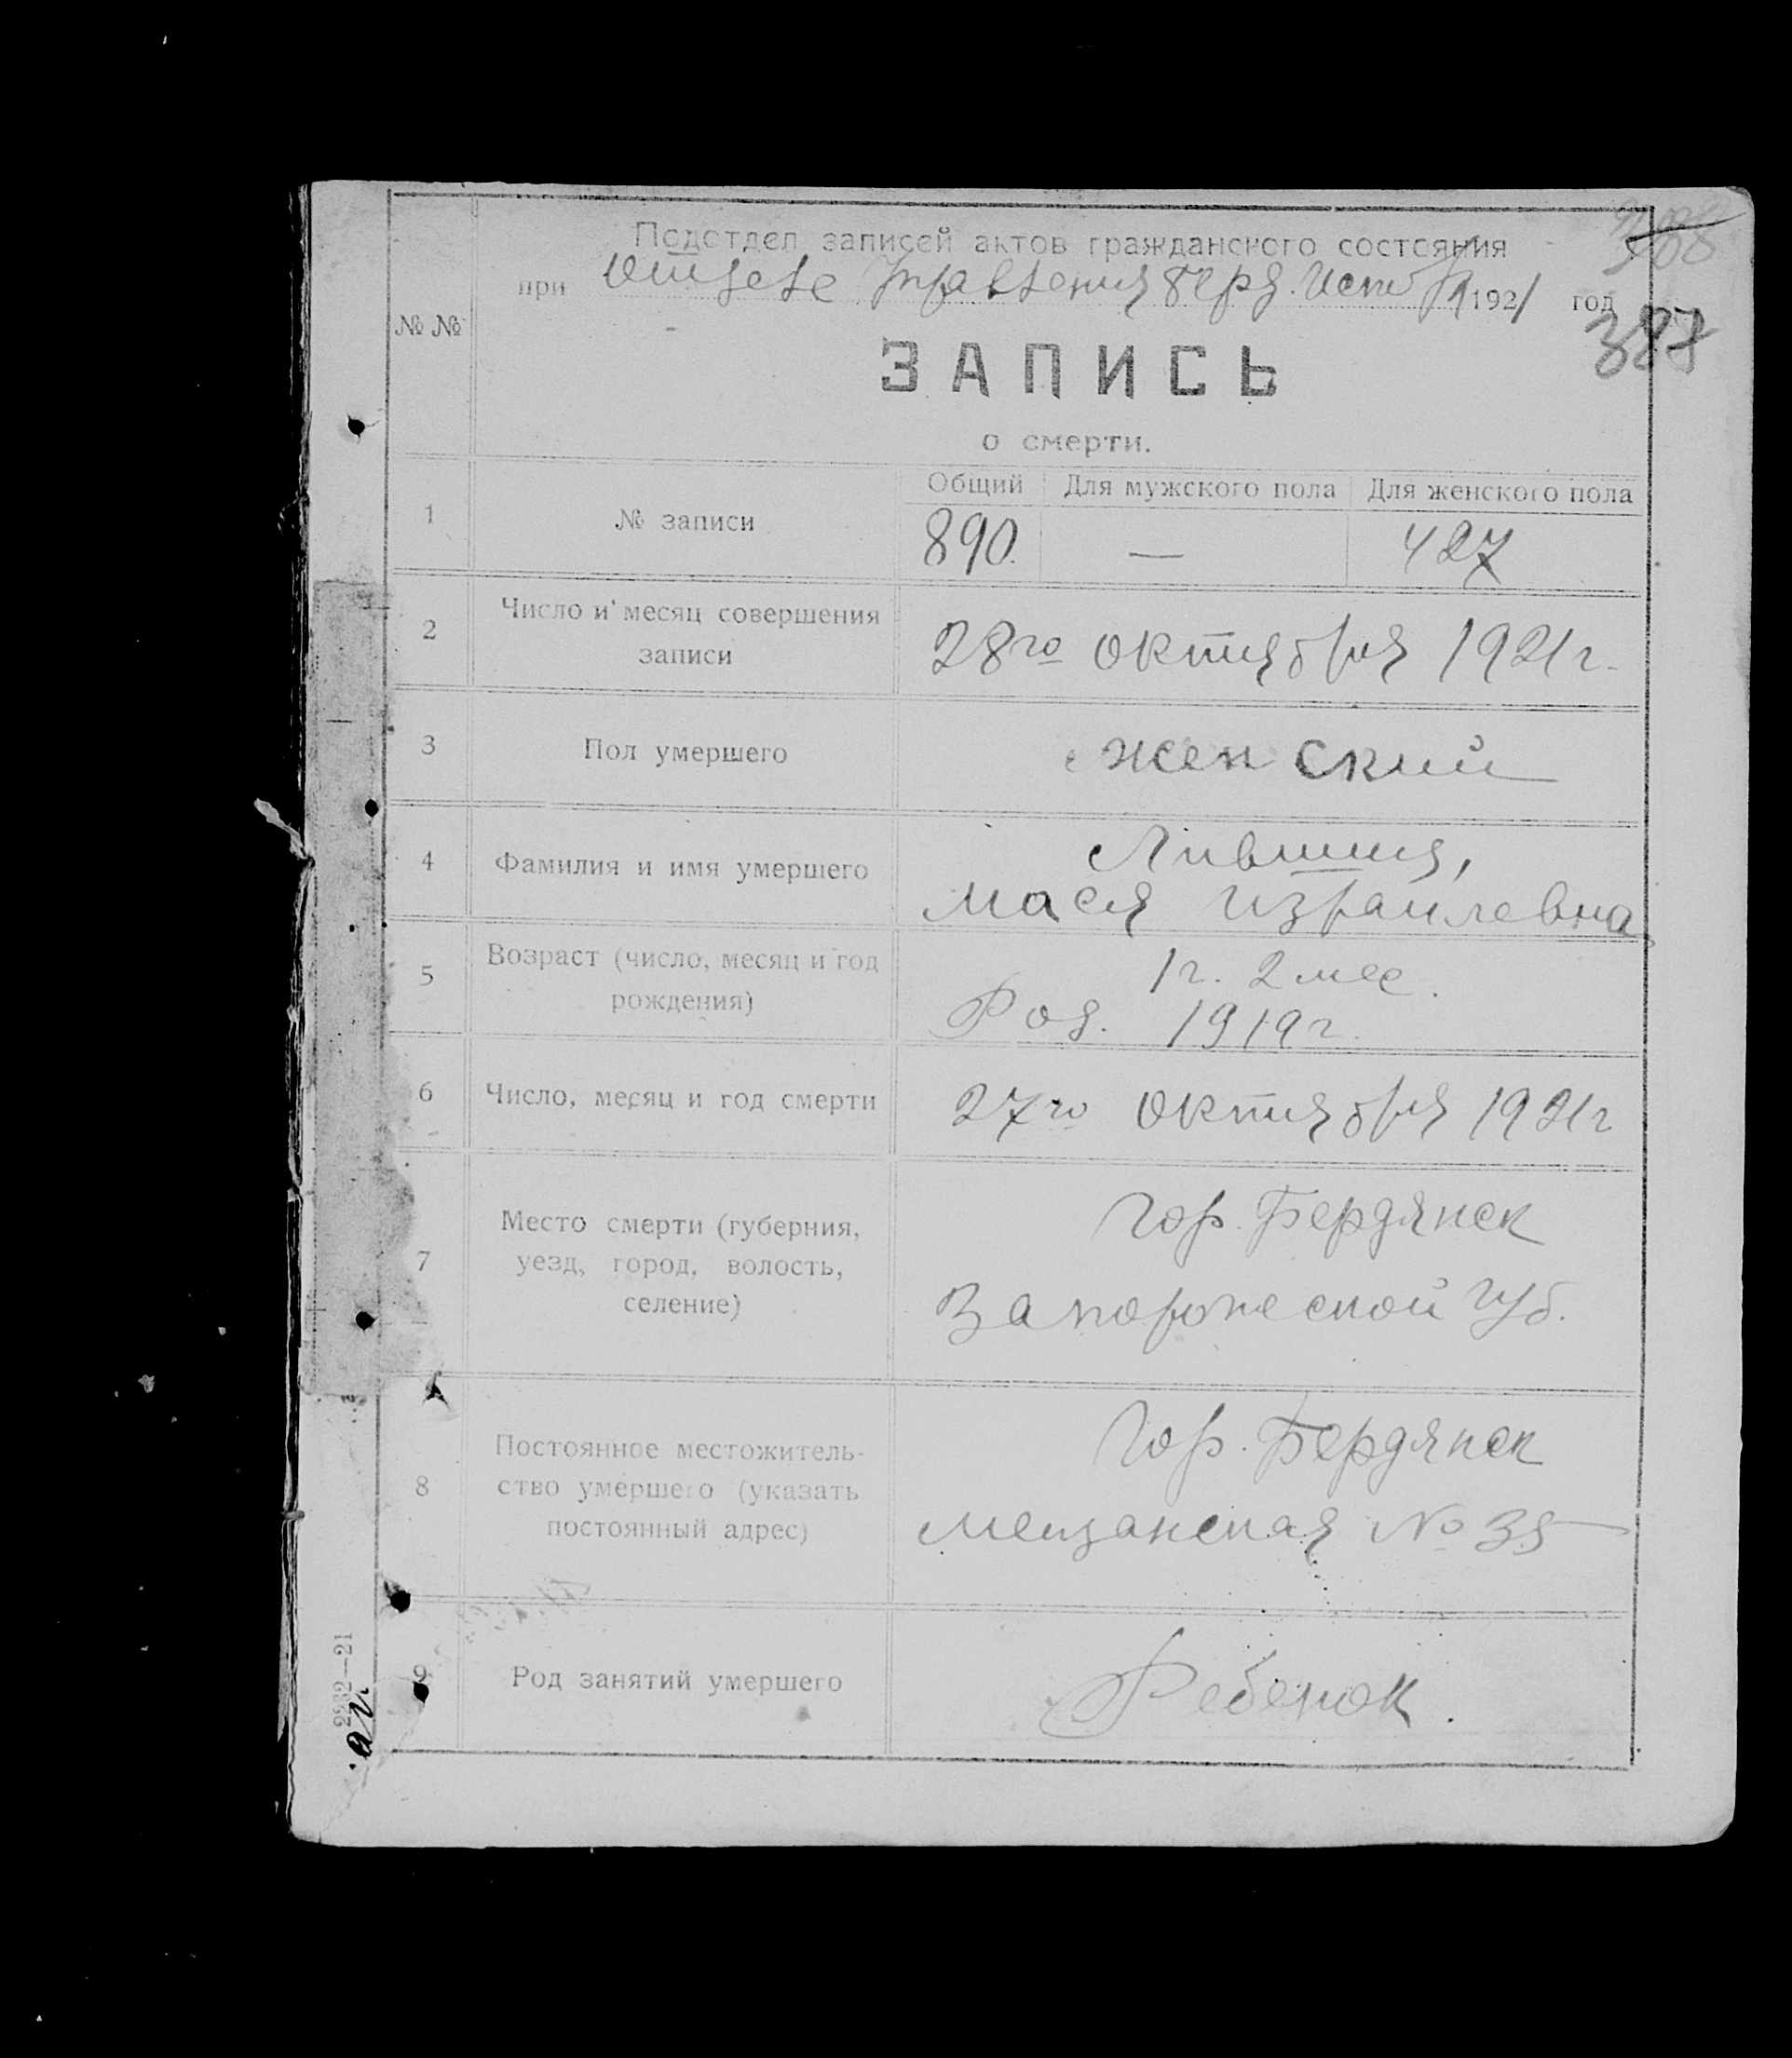 Подотдел записей актов гражданского состояния
при Отделе Управления Берд. Испол 1921 год
387
№ №
ЗАПИСЬ
о смерти.
Общий Для мужского пола Для женского пола
1 № записи 890. — 427
2 Число и месяц совершения
записи
28го октября 1921г.
3 Пол умершего женский
4 Фамилия и имя умершего
Лившиц,
Мася Израилевна
5 Возраст (число, месяц и год
рождения)
1г. 2 мес.
Род. 1919г.
6 Число, месяц и год смерти 27го октября 1921г
7 Место смерти (губерния,
уезд, город, волость,
селение)
гор. Бердянск
Запорожской губ.
8 Постоянное местожитель-
ство умершего (указать
постоянный адрес)
гор. Бердянск
Мещанская № 35
9 Род занятий умершего Ребенок.
2232—21